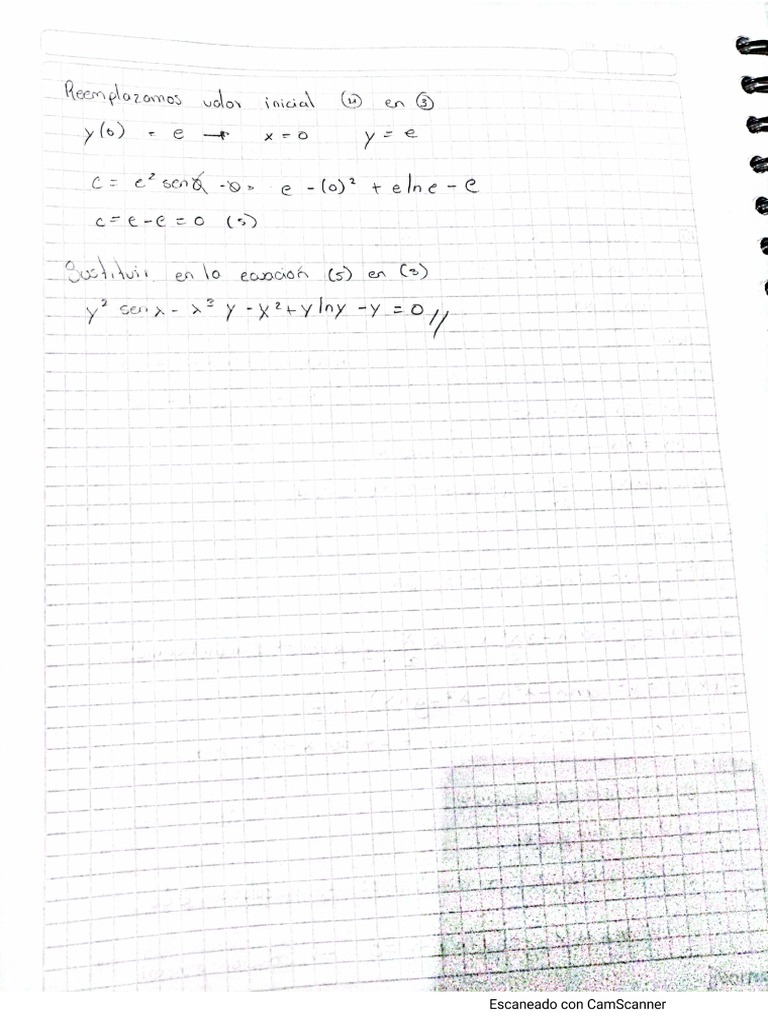 Reemplazamos valor inicial (4) en (3)
y(0) = e → x = 0 y = e
c = e² sen 0 - 0 · e - (0)² + e ln e - e
c = e - e = 0 (5)
Sustituir en la ecuación (5) en (3)
y² sen x - x³ y - x² + y ln y - y = 0 //
Escaneado con CamScanner